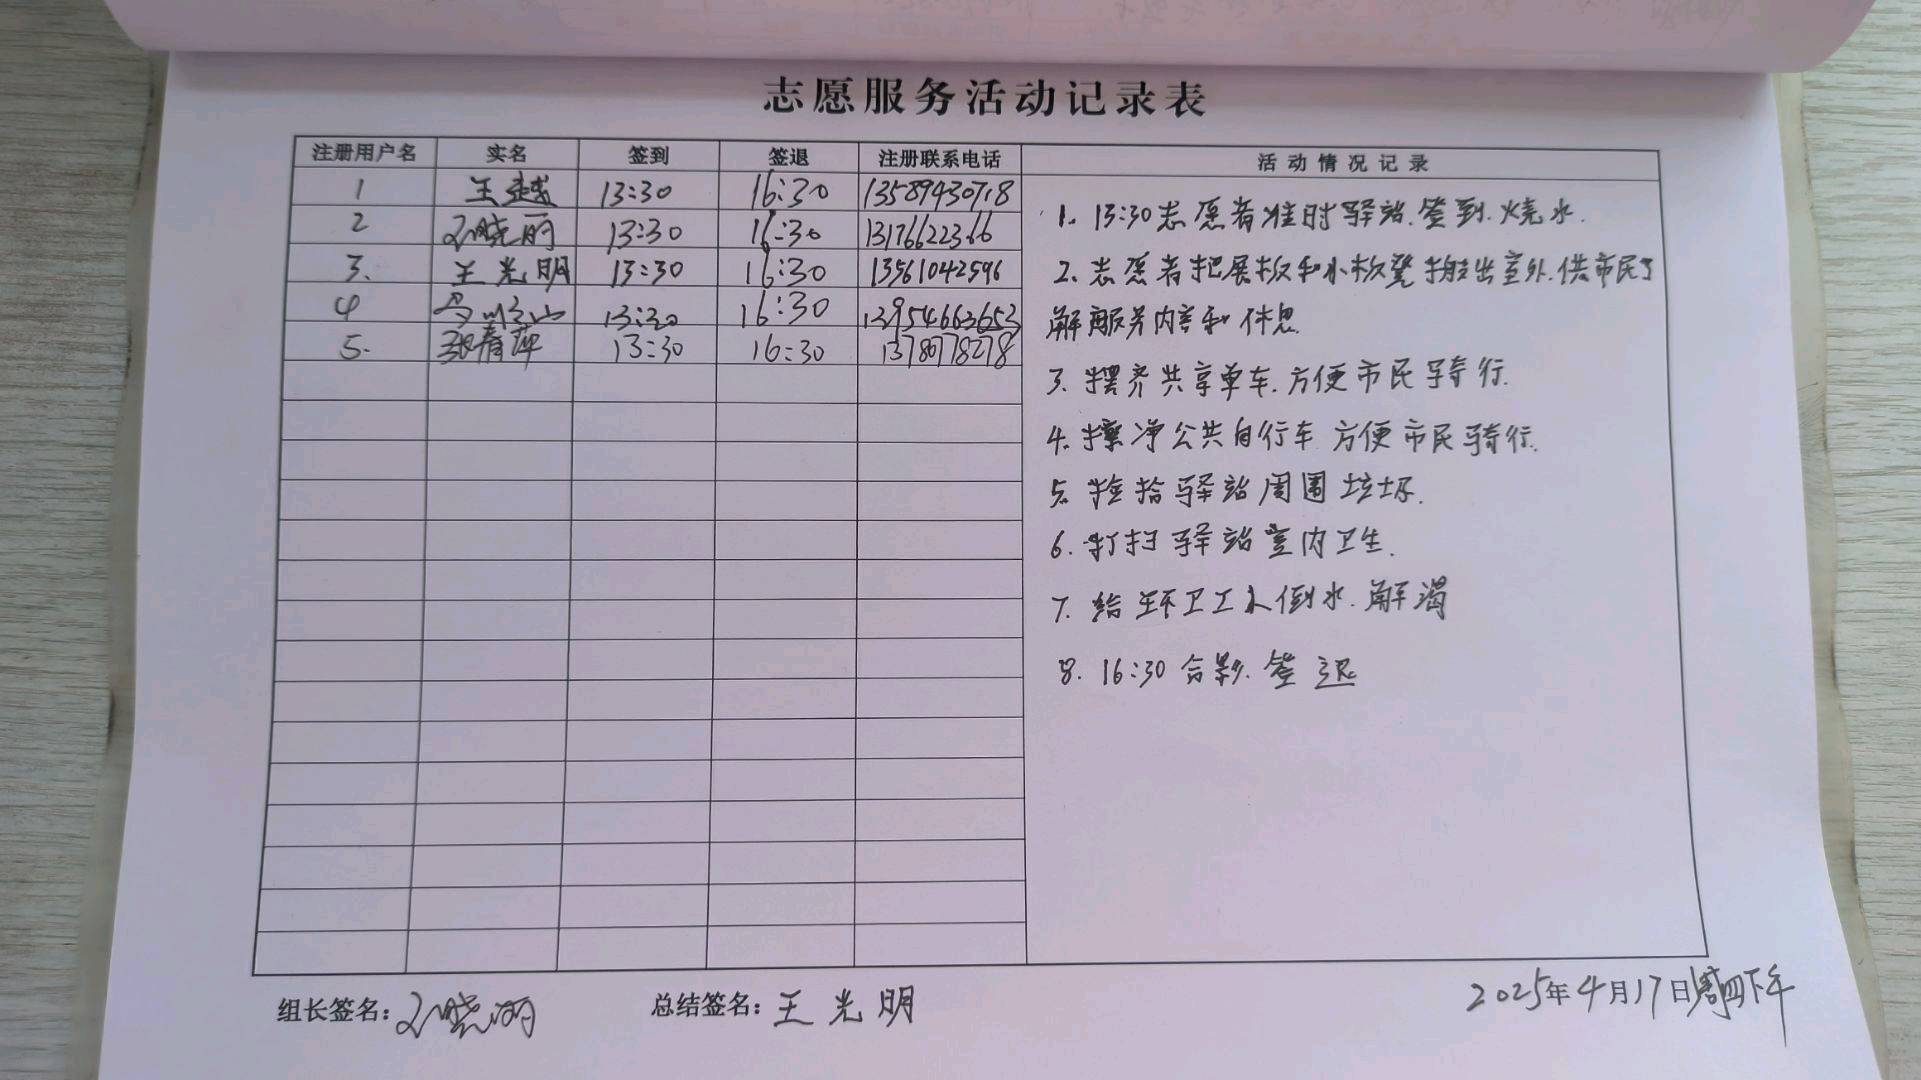 志愿服务活动记录表
注册用户名 实名 签到 签退 注册联系电话 活动情况记录
1 王越 13:30 16:30 13589430718
2 孙晓丽 13:30 16:30 13176622366
3. 王光明 13:30 16:30 13561042596
4 13:30 16:30 13954663653
5. 张春萍 13:30 16:30 13780778278
1. 13:30志愿者准时驿站.签到.烧水.
2. 志愿者把展板和小板凳搬出室外.供市民了
解服务内容和休息
3. 摆齐共享单车.方便市民骑行.
4. 擦净公共自行车 方便市民骑行.
5. 捡拾驿站周围垃圾.
6. 打扫驿站室内卫生.
7. 给环卫工人倒水.解渴
8. 16:30合影.签退
组长签名: 孙晓丽 总结签名: 王光明 2025年4月17日周四下午